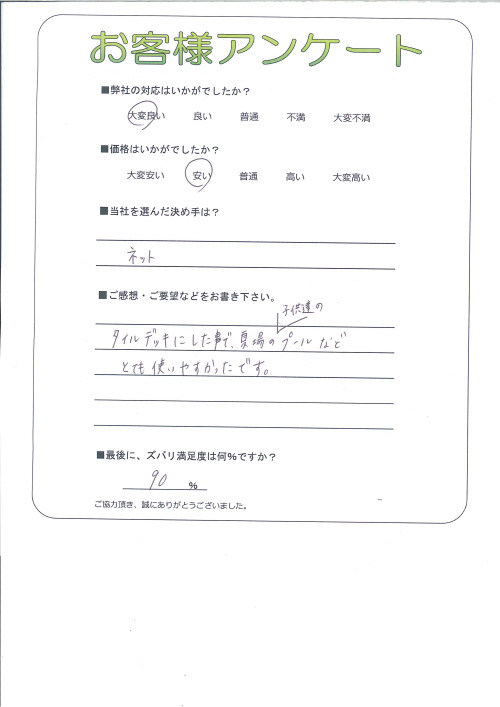 お客様アンケート
■弊社の対応はいかがでしたか？
大変良い 良い 普通 不満 大変不満
■価格はいかがでしたか？
大変安い 安い 普通 高い 大変高い
■当社を選んだ決め手は？
ネット
■ご感想・ご要望などをお書き下さい。
子供達の
タイルデッキにした事で、夏場のプールなど
とても使いやすかったです。
■最後に、ズバリ満足度は何％ですか？
90 ％
ご協力頂き、誠にありがとうございました。